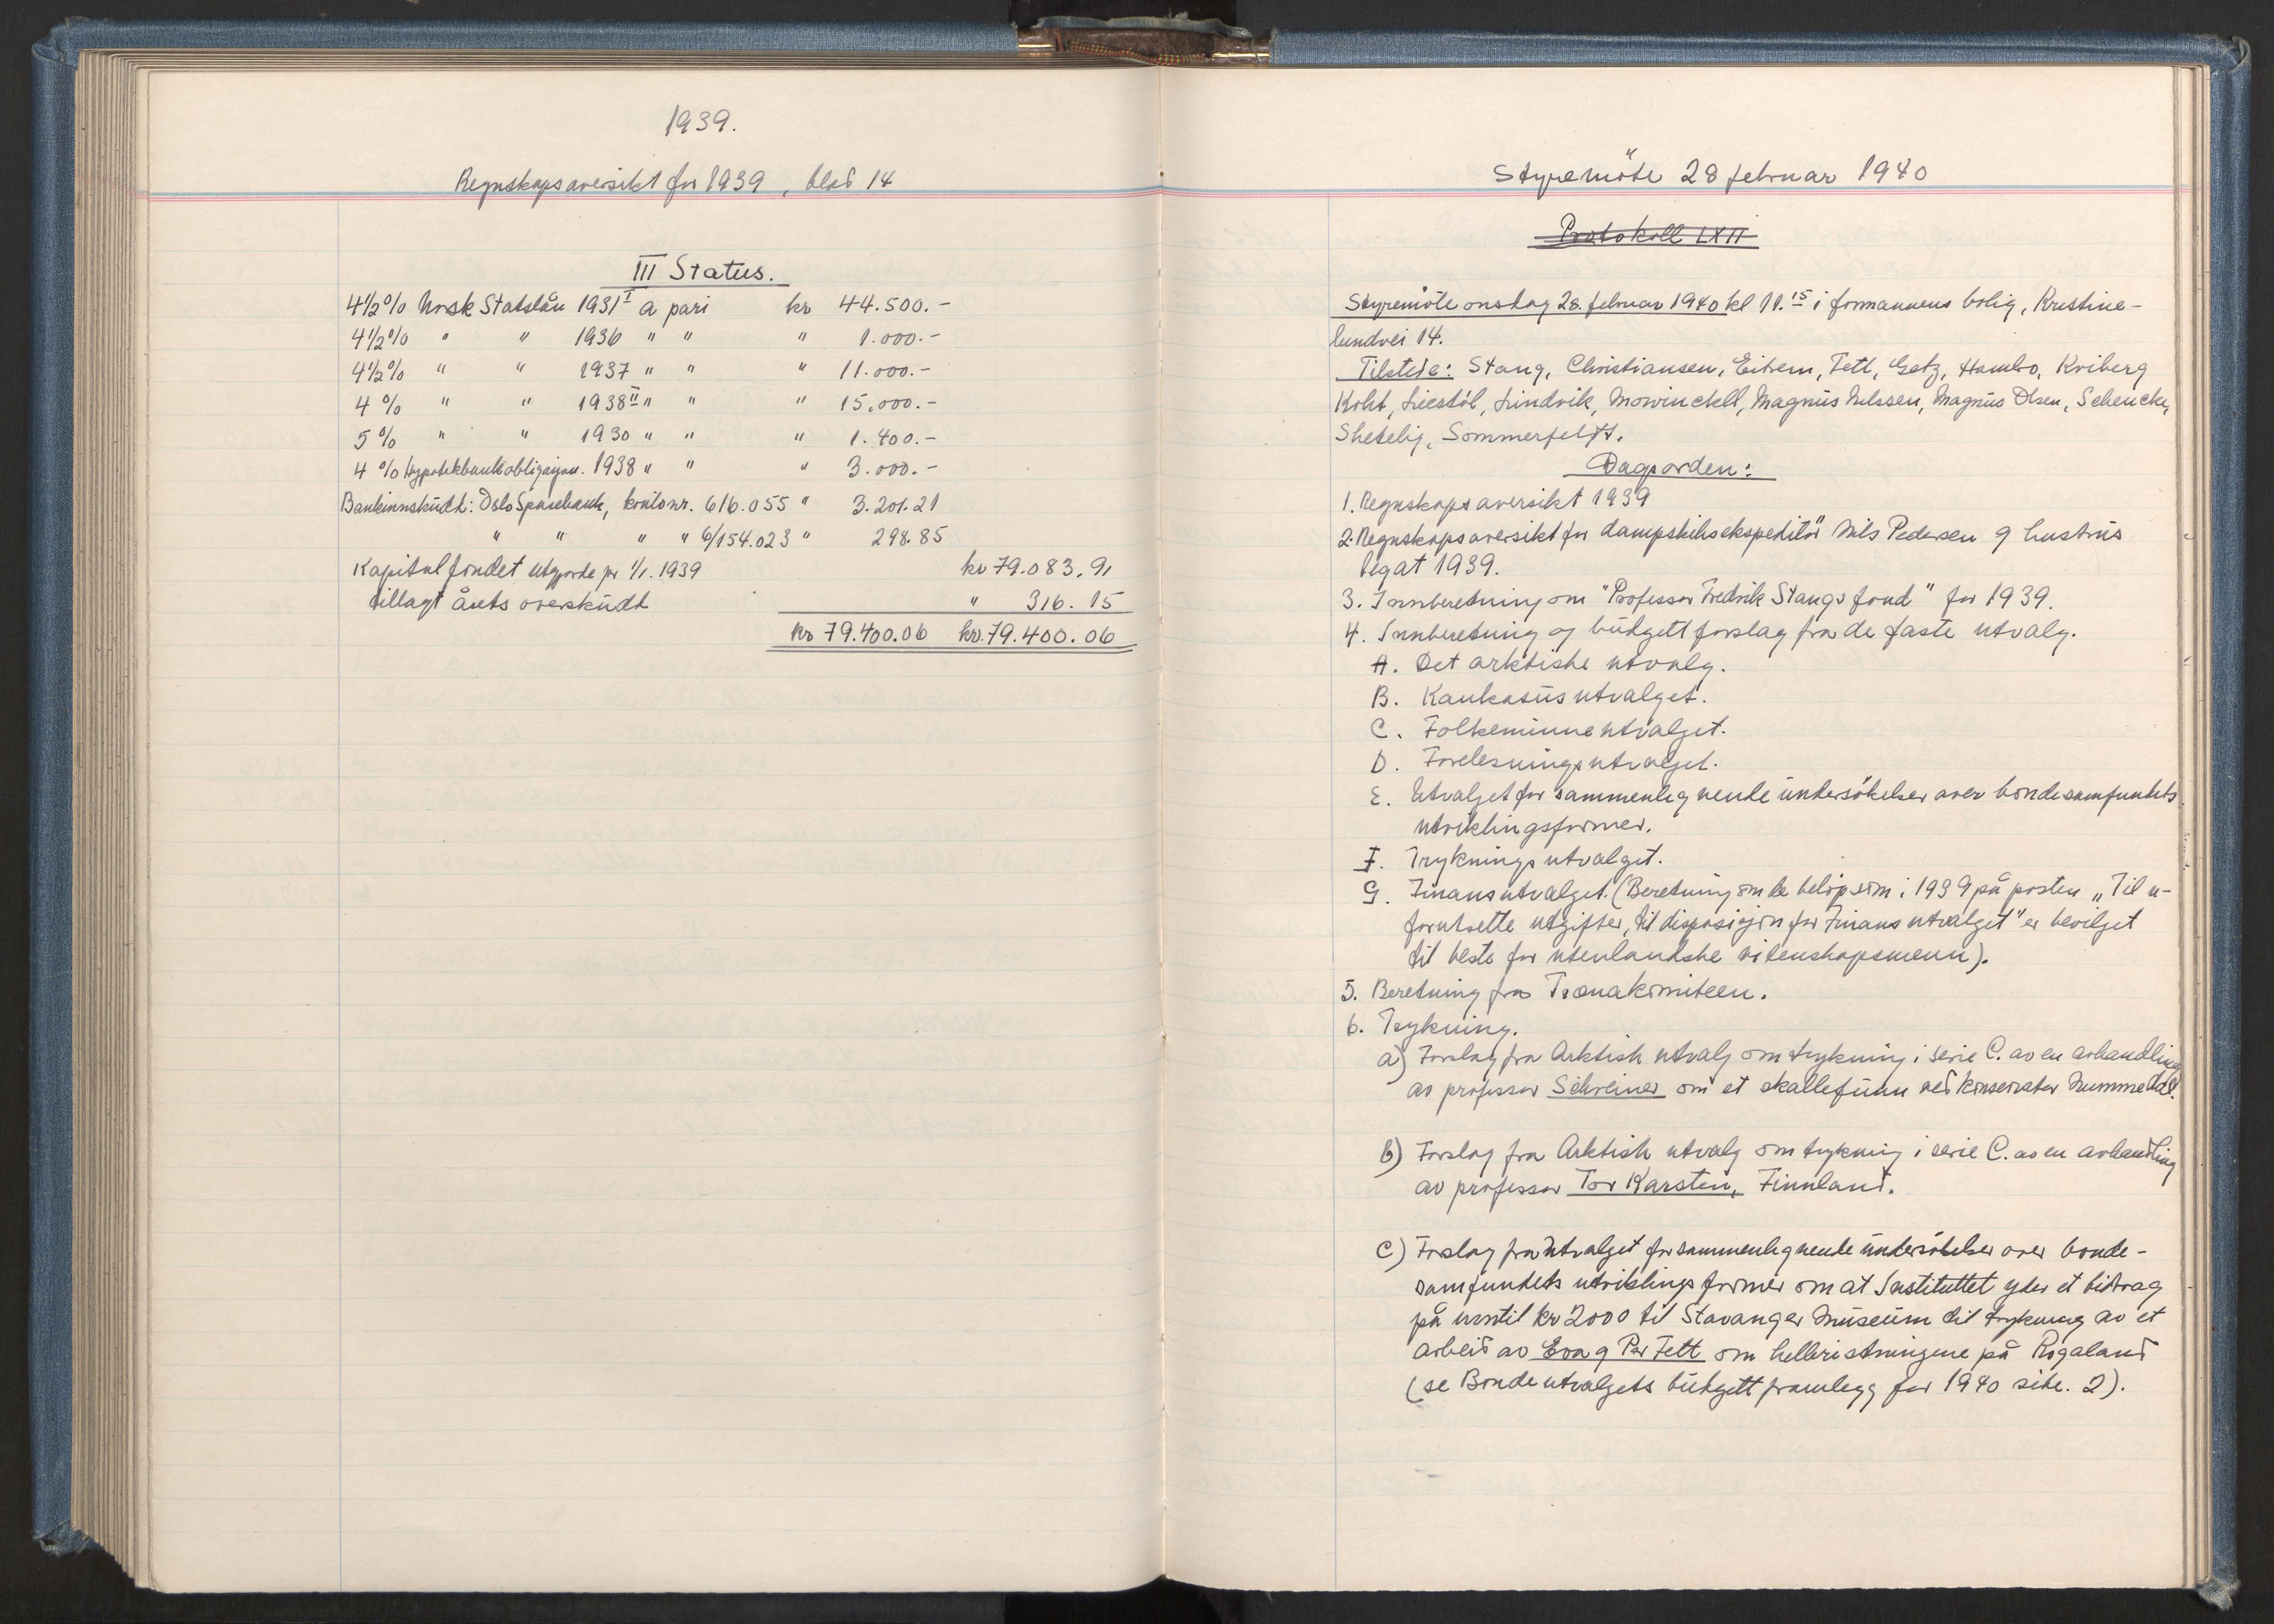 1939.
Regnskapsoversikt for 1939, blad 14
III Status.
4 1/2 % Norsk Statslån 1931 I a pari kr 44.500.-
4 1/2 % " " 1936 " " " 1.000.-
4 1/2 % " " 1937 " " " 11.000.-
4 % " " 1938 II " " " 15.000.-
5 % " " 1930 " " " 1.400.-
4 % Hypotekbankobligasjon. 1938 " " " 3.000.-
Bankinnskudt: Oslo Sparebank, konto nr. 616.055 " 3.201.21
" " " " 6/154.023 " 298.85
Kapitalfondet utgjorde pr 1/1. 1939 kr 79.083.91
tillagt årets overskudt " 316.15
kr 79.400.06 kr. 79.400.06
Styremöte 28 februar 1940
Protokoll LXII
Styremöte onsdag 28. februar 1940 kl 11.15 i formannens bolig, Kristine-
lundvei 14.
Tilstede: Stang, Christiansen, Eitrem, Fett, Getz, Hambro, Kviberg
Koht, Liestöl, Lindvik, Mowinckell, Magnus Nilssen, Magnus Olsen, Schencke,
Shetelig, Sommerfelt.
Dagsorden:
1. Regnskapsoversikt 1939
2. Regnskapsoversikt for dampskibsekspeditör Nils Pedersen og hustrus
legat 1939.
3. Innberetning om "Professor Fredrik Stangs fond" for 1939.
4. Innberetning og budgettforslag fra de faste utvalg.
A. Det arktiske utvalg.
B. Kaukasusutvalget.
C. Folkeminneutvalget.
D. Forelesningsutvalget.
E. Utvalget for sammenlignende undersökelser over bondesamfundets
utviklingsformer.
F. Trykningsutvalget.
G. Finansutvalget. (Beretning om de belöp som i 1939 på posten „Til u-
forutsette utgifter, til disposisjon for Finansutvalget" er bevilget
til beste for utenlandske vitenskapsmenn).
5. Beretning fra Trænakomiteen.
6. Trykning.
a) Forslag fra Arktisk utvalg om trykning i serie C. av en avhandling
av professor Schreiner om et skallefunn ved konservator Nummedal.
b) Forslag fra Arktisk utvalg om trykning i serie C. av en avhandling
av professor Tor Karsten, Finnland.
c) Forslag fra Utvalget for sammenlignende undersökelser over bonde-
samfundets utviklingsformer om at Instituttet yder et bidrag
på inntil kr 2000 til Stavanger Museum til trykning av et
arbeid av Eva og Per Fett om helleristningene på Rogaland
(se Bondeutvalgets budgettframlegg for 1940 side. 2).